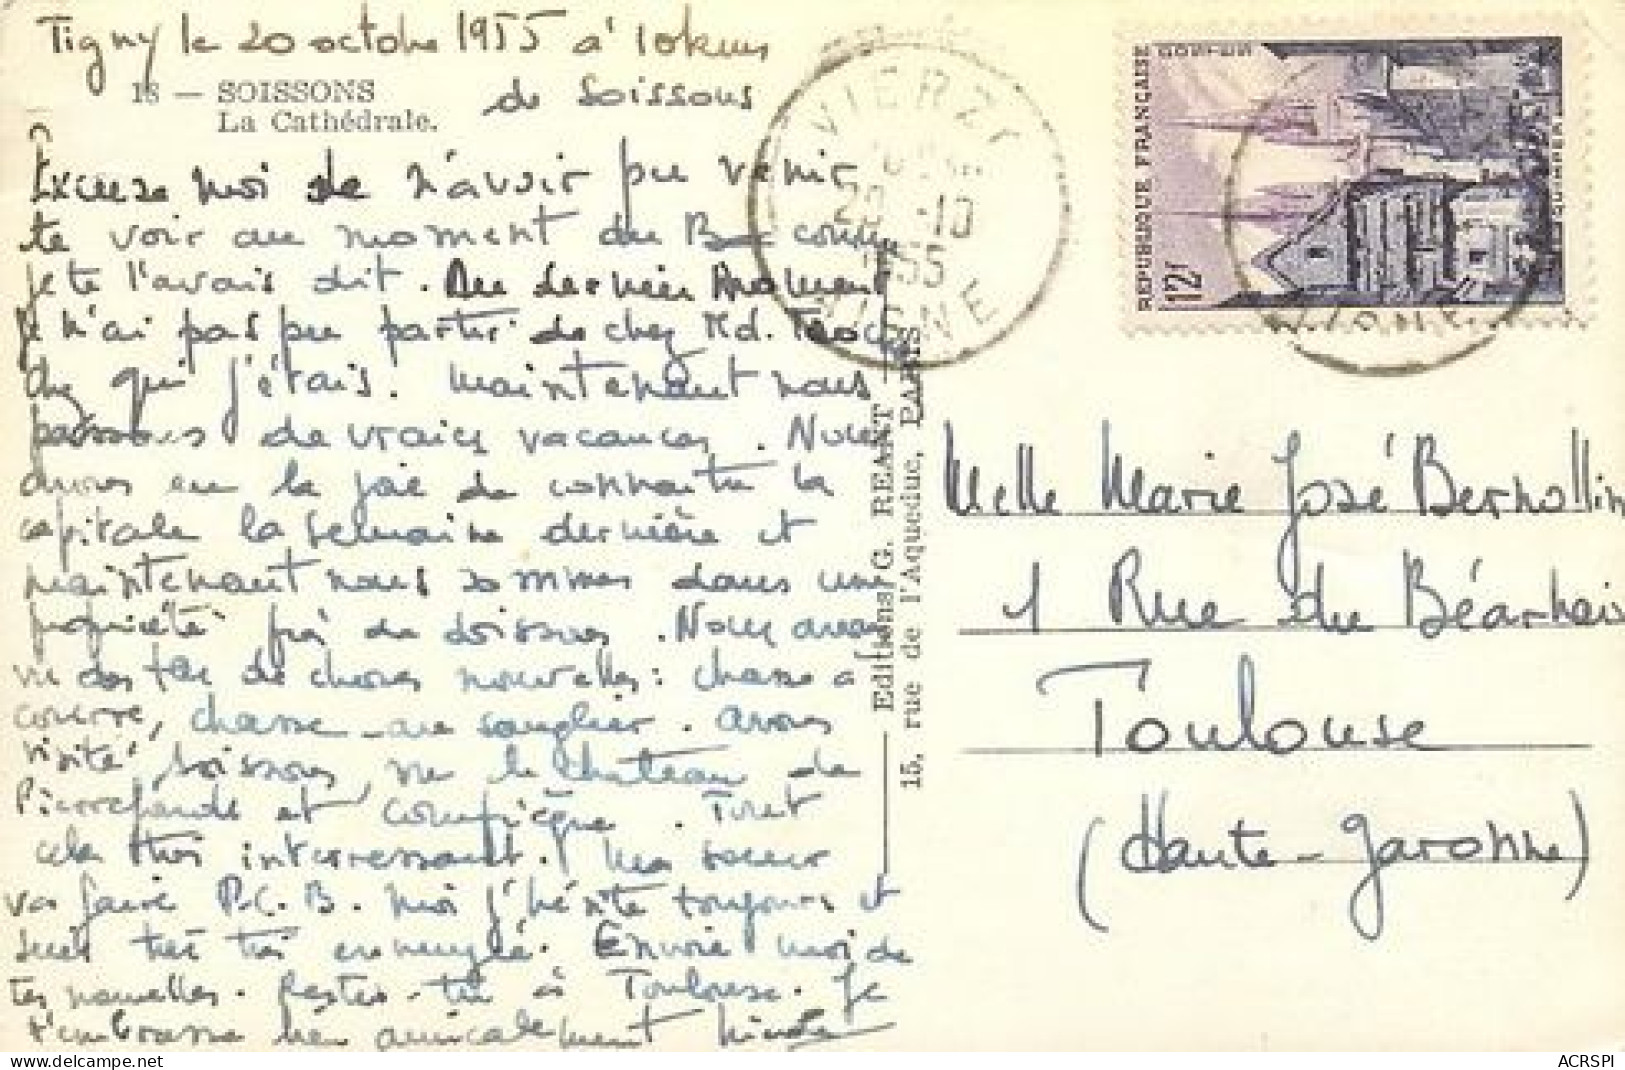 Tigny le 20 octobre 1955 à 10 kms
de Soissons
18 — SOISSONS
La Cathédrale.
Excuse moi de n'avoir pu venir
te voir au moment du B comme
je te l'avais dit. Au dernier moment
je n'ai pas pu partir de chez Md.
qui j'étais. Maintenant nous
passons de vraies vacances. Nous
avons eu la joie de connaître la
capitale la semaine dernière et
maintenant nous sommes dans une
propriété près de Soissons. Nous avons
vu des tas de choses nouvelles: chasse à
courre, chasse au sanglier. Avons
visité Soissons, vu le château de
Pierrefonds et Compiègne. Tout
cela très intéressant. Ma soeur
va faire P.C.B. Moi j'hésite toujours et
suis très très ennuyée. Envoie moi de
tes nouvelles. Restes-tu à Toulouse. Je
t'embrasse bien amicalement Nicole
Editions G. REANT
15, rue de l'Aqueduc, PARIS
VIERZY
20 -10
1955
AISNE
REPUBLIQUE FRANÇAISE
12F
QUIMPER
AISNE
Melle Marie José Bernollin
1 Rue du Béarnais
Toulouse
(Haute-Garonne)
ACRSPI